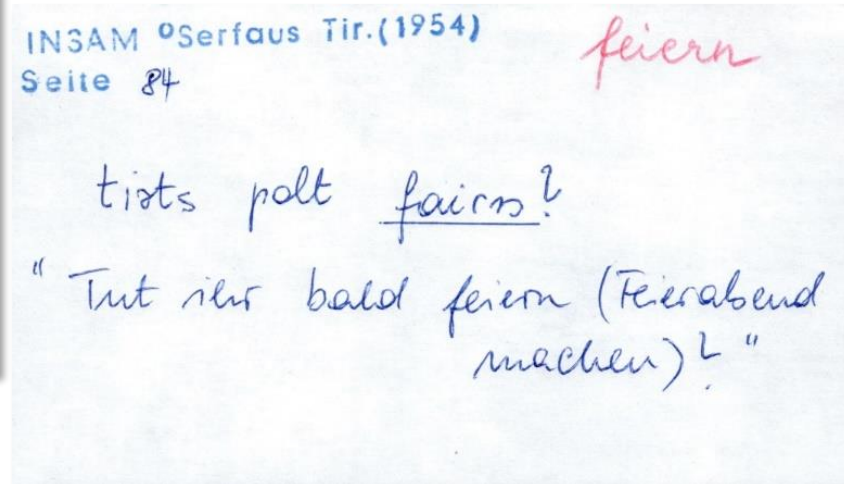 INSAM °Serfaus Tir.(1954)
feiern
Seite 84
tiəts polt
" Tut ihr bald feiern (Feierabend
machen)? "